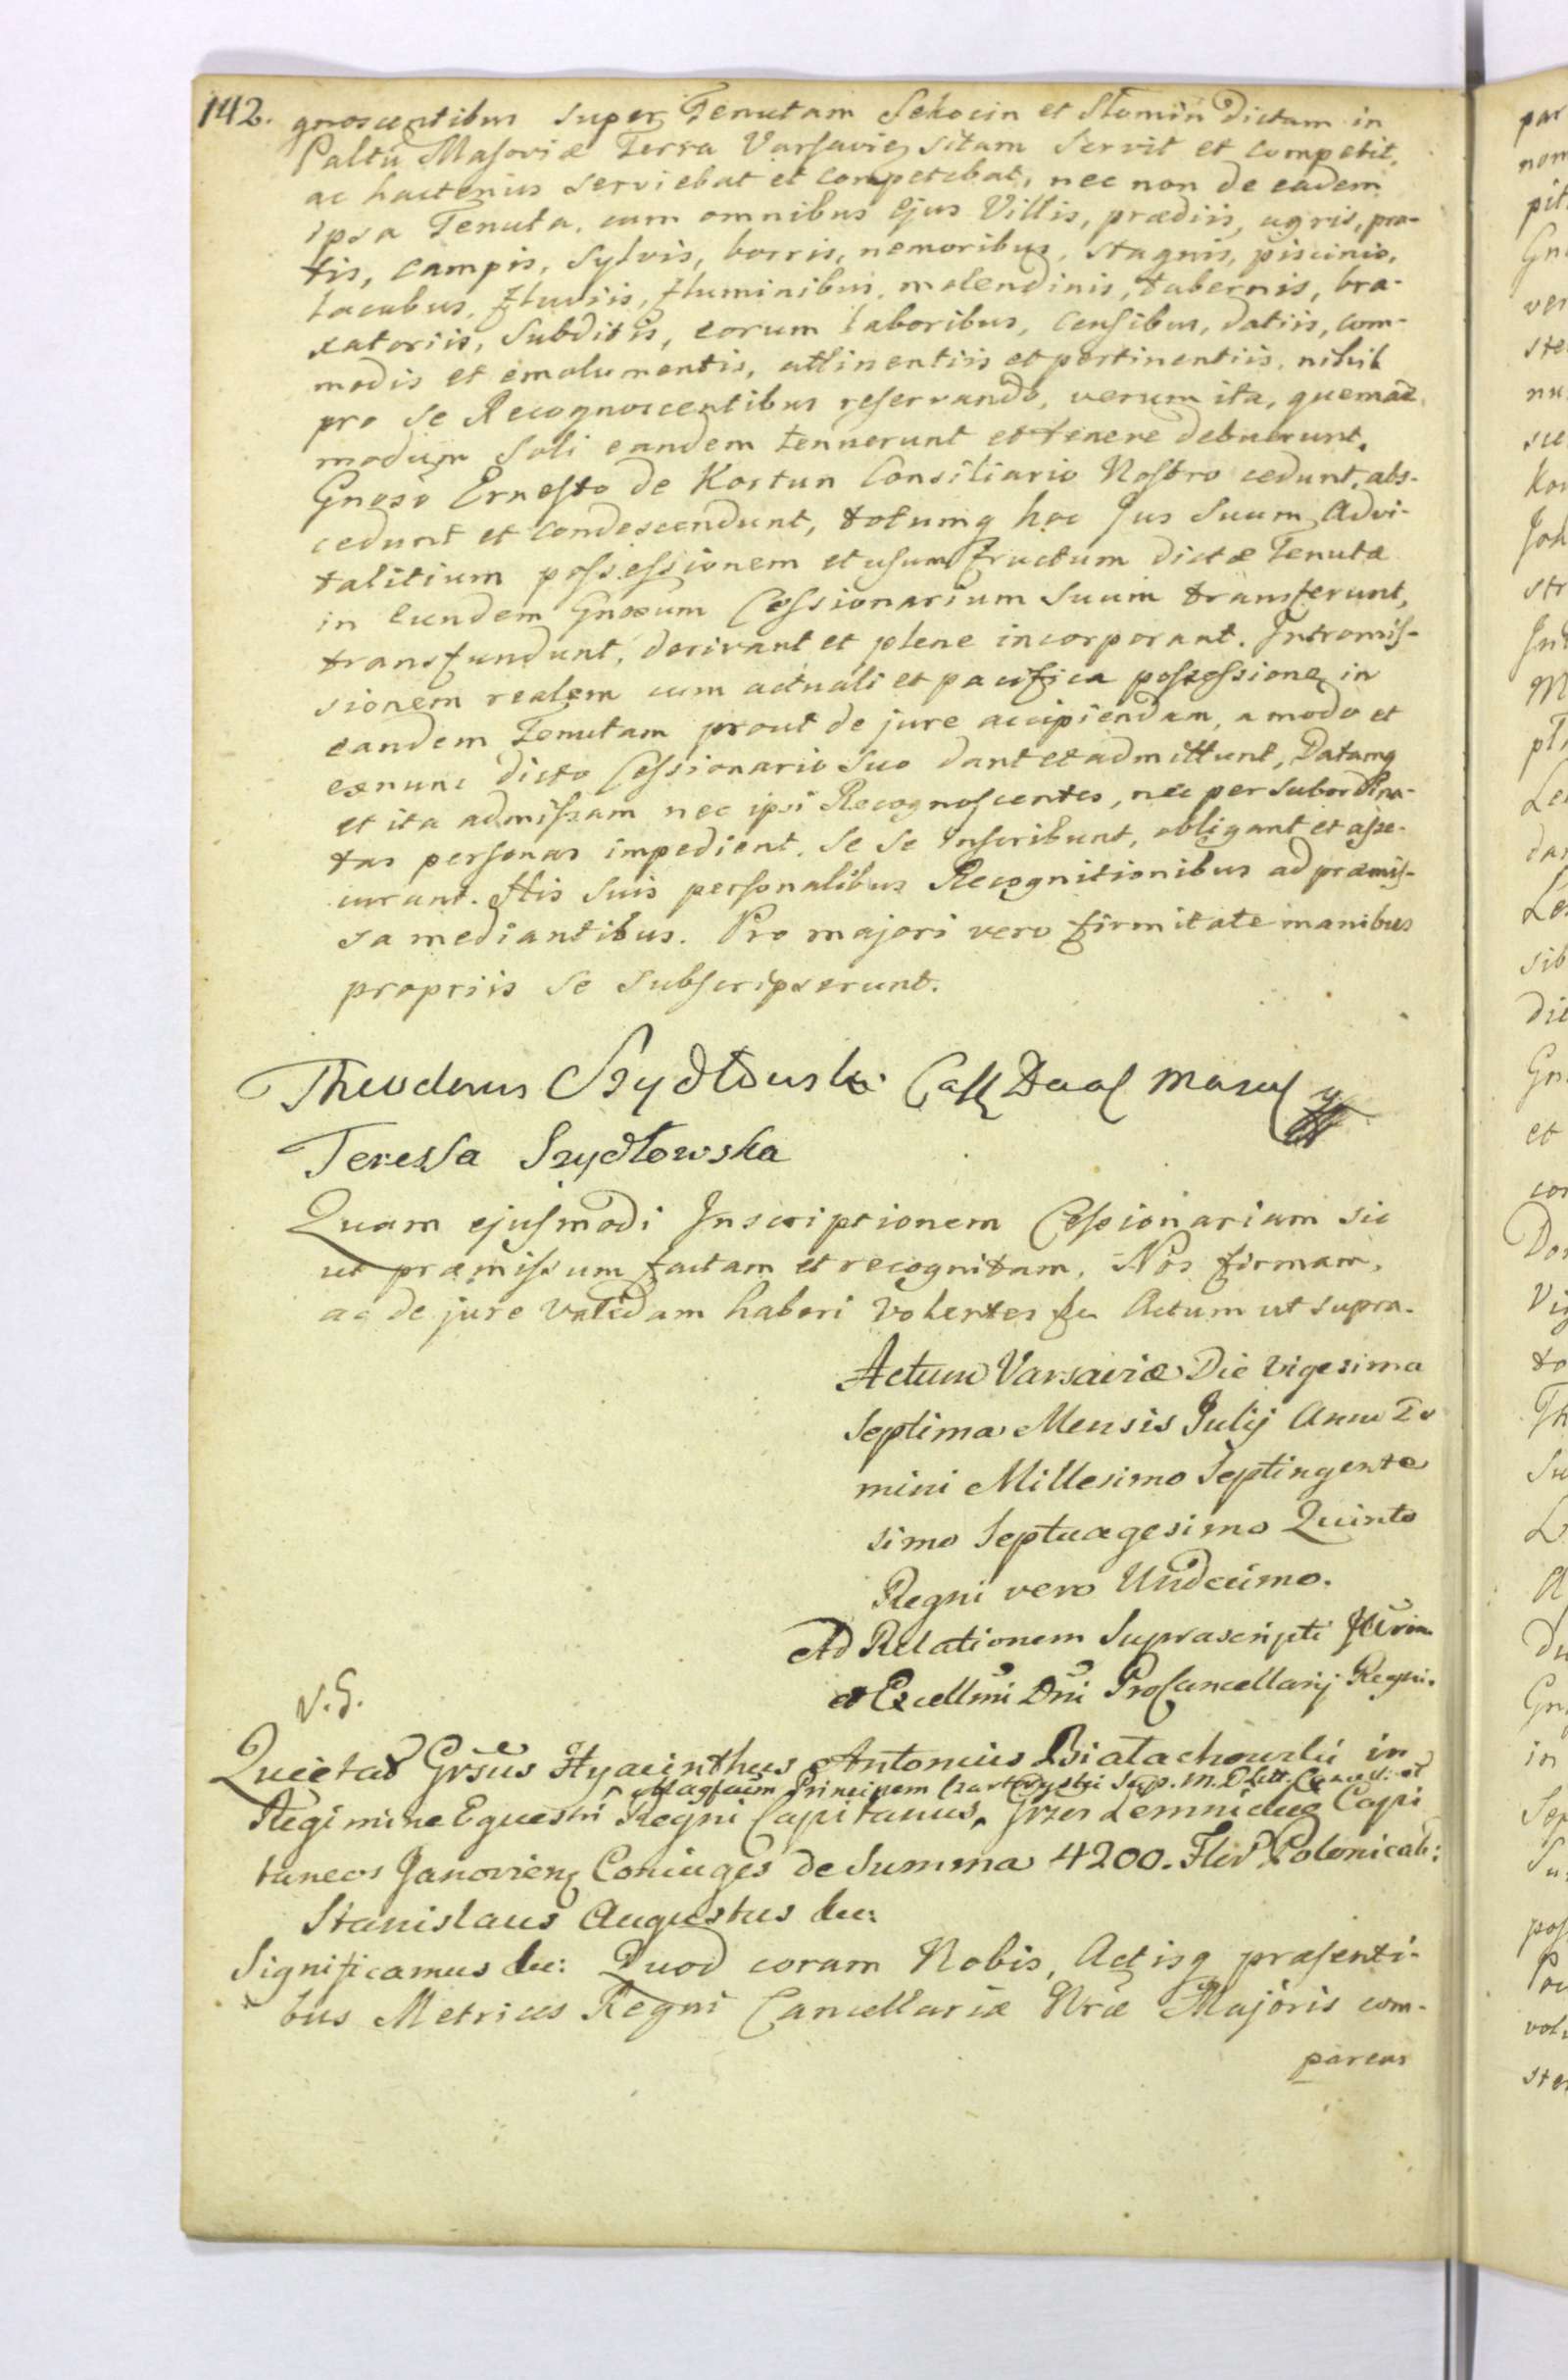 142. gnoscentibus super Tenutam Sekocin et Stomin dictam in
Paltū Masoviæ Terra Varsavień sitam servit et competit,
ac hactenus serviebat et competebat, nec non de eadem
ipsa Tenuta, cum omnibus ejus Villis, prædiis, agris, pra-
tis, campis, Sylvis, borris, nemoribus, stagnis, piscinis,
lacubus, fluviis, fluminibus, molendinis, tabernis, bra-
xatoriis, Subditis, eorum laboribus, censibus, datiis, com-
modis et emolumentis, attinentiis et pertinentiis, nihil
pro se Recognoscentibus reservando, verum ita, quemad-
modum soli eandem tennerunt et tenere debuerunt,
Gnoso Ernesto de Kortun Consiliario Nostro cedunt, abs-
cedunt et condescendunt, totumq hoc Jus Suum Advi-
talitium possessionem et usumfructum dictæ Tenutæ
in eundem Gnosum Cessionarium Suum transferunt,
transfundunt, derivant et plene incorporant. Intromis-
sionem realem cum actuali et pacifica possessione in
eandem Tenutam prout de jure accipiendam, a modo et
exnunc dicto Cessionario Suo dant et admittunt, Datamq
et ita admissam nec ipsi Recognoscentes, nec per subordina-
tas personas impedient. Se se Inscribunt, obligant et asse-
curant. His suis personalibus Recognitionibus ad præmis-
sa mediantibus. Pro majori vero firmitate manibus
propriis se subscripserunt.
Theodorus Szydłowski
Teressa Szydłowska
Quam ejusmodi Inscriptionem Cessionariam sic
ut præmissum factam et recognitam, Nos firmam,
ac de jure validam haberi volentes &c Actum ut supra.
Actum Varsaviæ Die Vigesima
Septima Mensis Julij Anno Do
mini Millesimo Septingente
simo Septuagesimo Quinto
Regni vero Undecimo.
Ad Relationem Suprascripti
et Excellmi Dni ProCancellarij Regni.
Quietat Grsus Hyacinthus Antonius Białachowski in
Magfcum Principem Czartoryski Sup. M. D. Litt. Cancel. et
Regimine Equestri Regni Capitaneus, Capi
taneos Janovień Coniuges de Summa 4200. Flor Polonicali:
Stanislaus Augustus &c:
Significamus &c: Quod coram Nobis, Actisq præsenti-
bus Metrices Regni Cancellariæ Nræ Majoris com-
parens